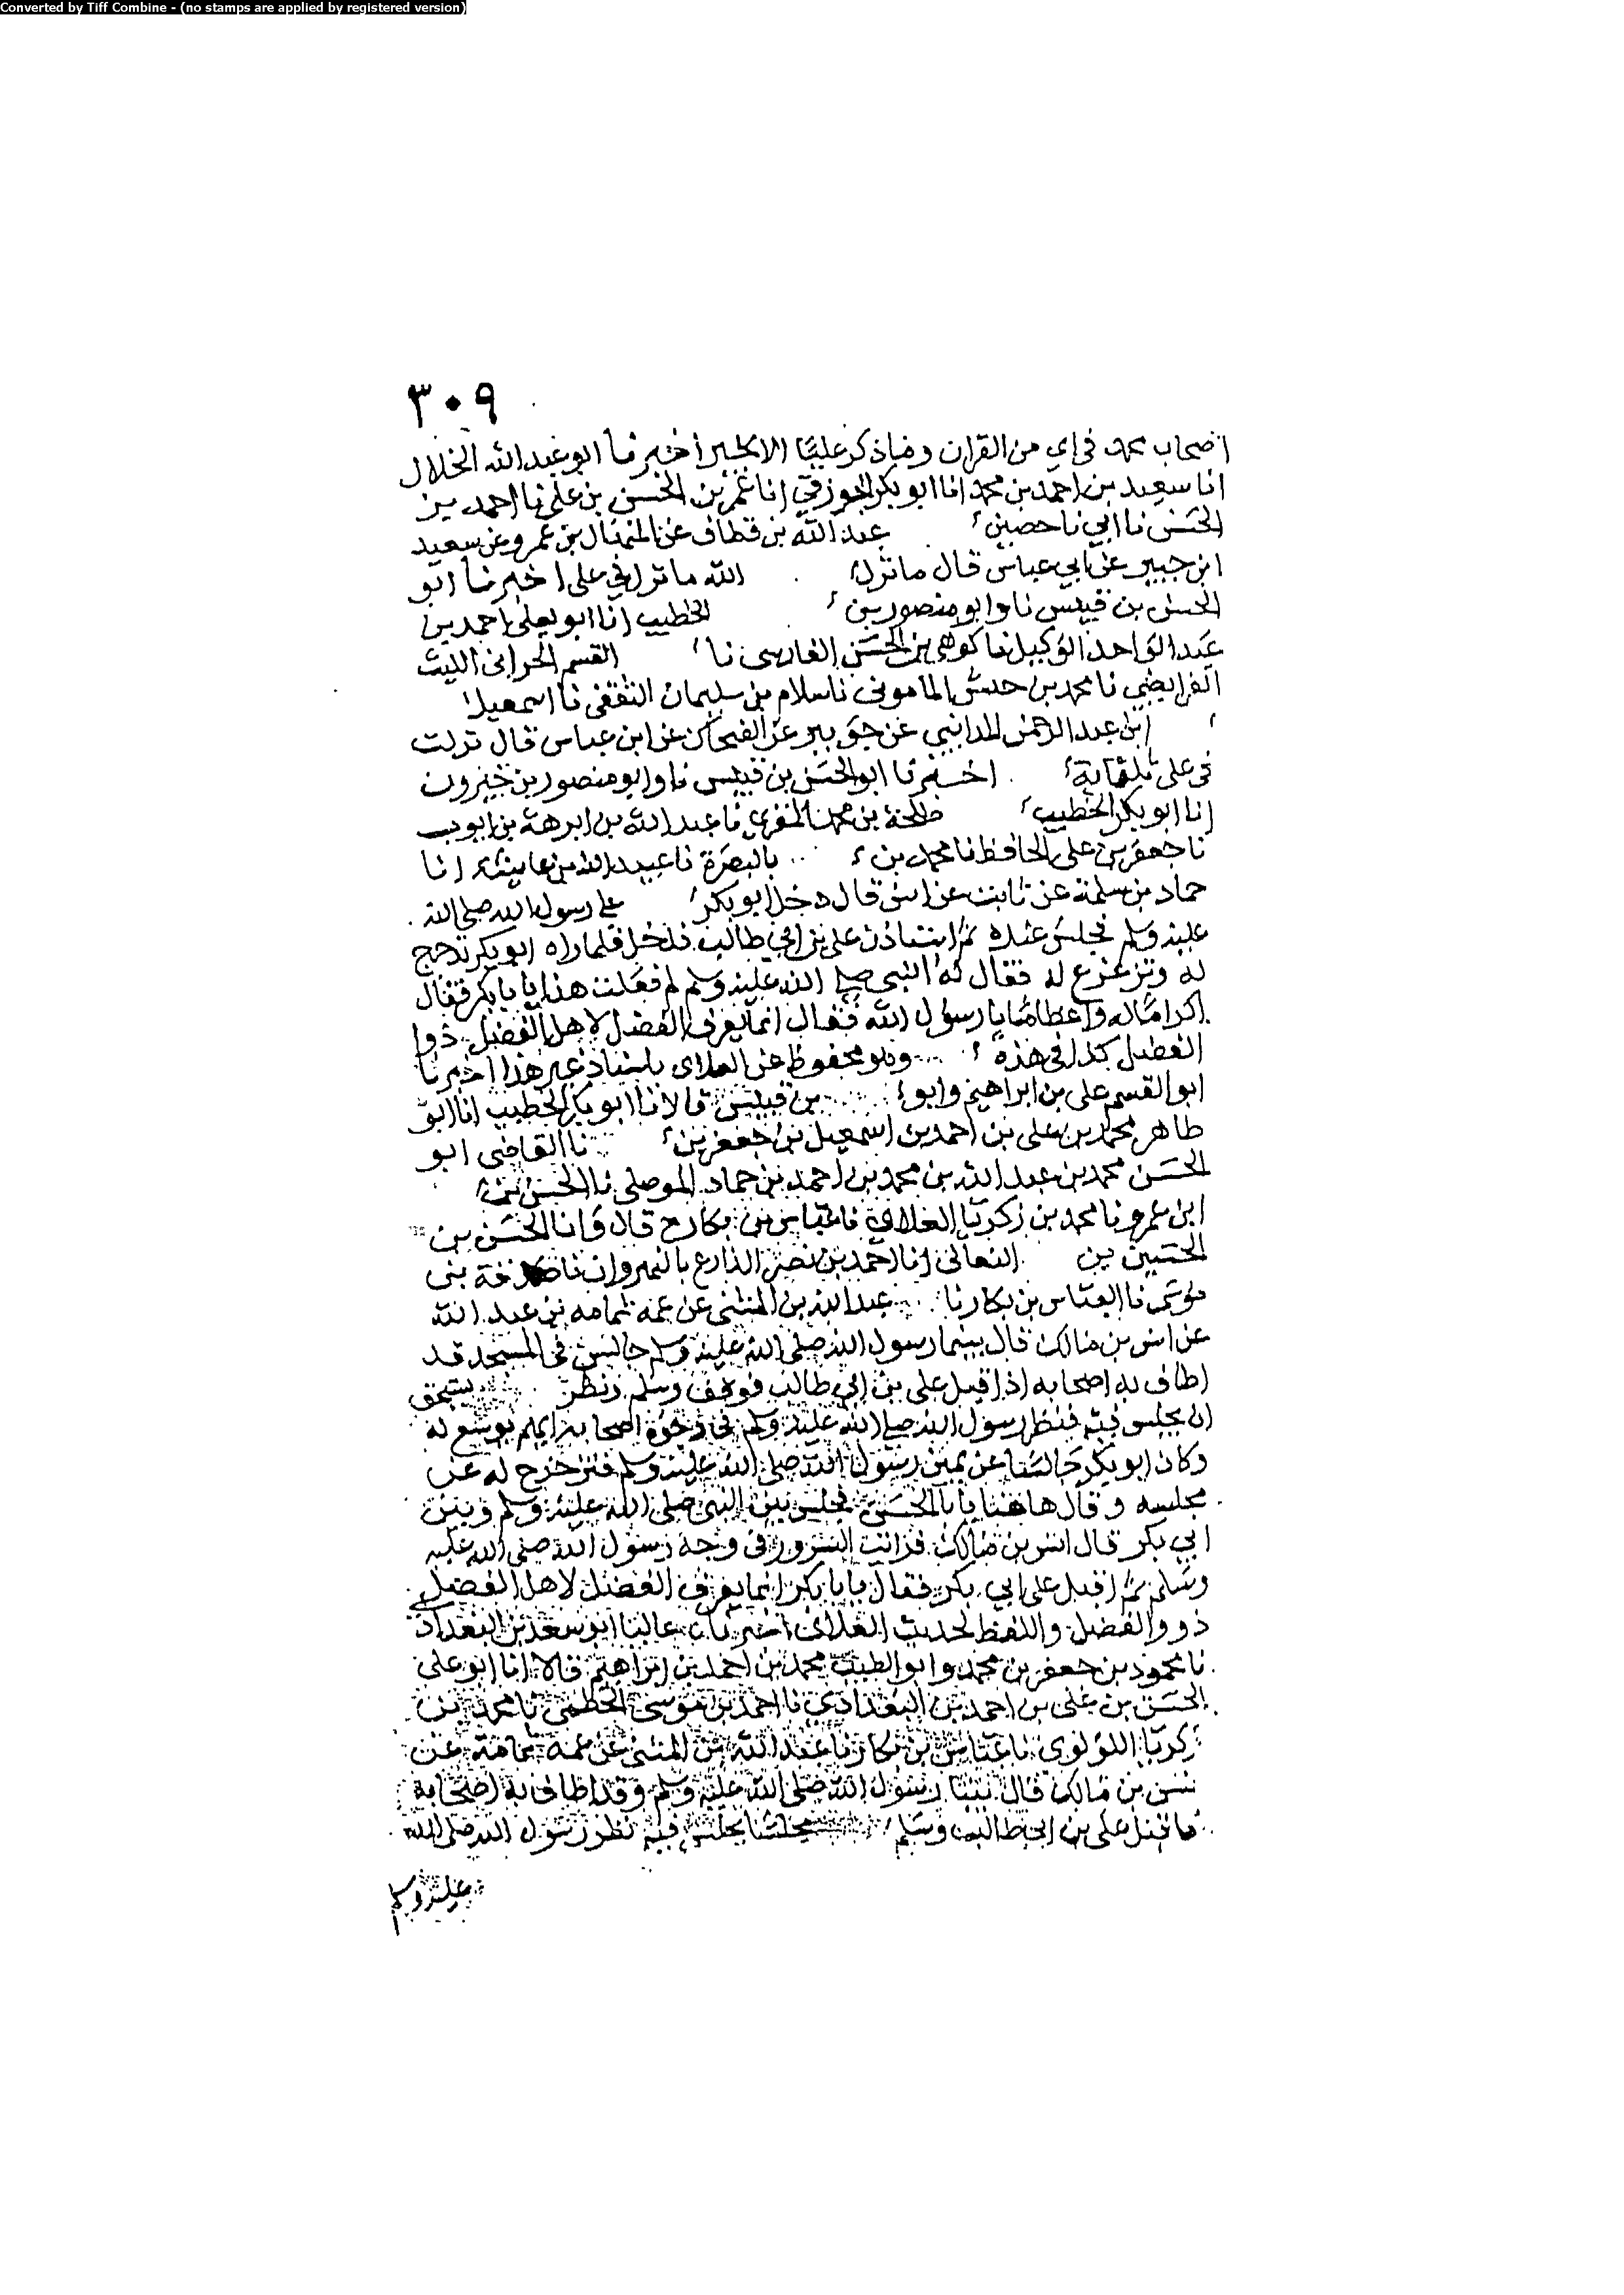 Converted by Tiff Combine - (no stamps are applied by registered version)
٣٠٩
اصحاب محمد في اي من القران وما ذكر عليا الا بخير اخبرنا ابو عبد الله الخلال
انا سعيد بن احمد بن محمد انا ابو بكر الجوزقي انا عمر بن الحسن بن علي نا احمد بن
الحسن نا ابي نا حصين عبد الله بن قطاف عن المنهال بن عمرو عن سعيد
ابن جبير عن ابي عباس قال ما نزل الله ما نزل في علي اخبرنا ابو
الحسن بن قبيس نا وابو منصور بن الخطيب انا ابو يعلى احمد بن
عبد الواحد الوكيل نا كوهي بن الحسن الفارسي نا القسم الحراني الليث
الفرايضي نا محمد بن حبش الماموني نا سلام بن سليمان الثقفي نا اسمعيل
ابن عبد الرحمن المدايني عن جويبر عن الضحاك عن ابن عباس قال نزلت
في علي ثلثماية اخبرنا ابو الحسن بن قبيس نا وابو منصور بن خيرون
انا ابو بكر الخطيب طلحة بن محمد المقري نا عبد الله بن ابرهة بن ايوب
نا جعفر بن علي الحافظ نا محمد بن بالبصرة نا عبيد الله بن عايشه انا
حماد بن سلمة عن ثابت عن انس قال دخل ابو بكر على رسول الله صلى الله
عليه وسلم فجلس عنده ثم استاذن علي بن ابي طالب فدخل فلما راه ابو بكر تزحزح
له وتزعزع له فقال له النبي صلى الله عليه وسلم لم فعلت هذا يا با بكر فقال
اكراما له واعظاما يا رسول الله فقال انما يعرف الفضل لاهل الفضل ذوا
الفضل كذا في هذه وهو محفوظ عن الغلابي باسناد غير هذا اخبرنا
ابو القسم علي بن ابراهيم وابو بن قبيس قالا نا ابو بكر الخطيب انا ابو
طاهر محمد بن علي بن احمد بن اسمعيل بن جعفر بن نا القاضي ابو
الحسن محمد بن عبد الله بن محمد بن احمد بن حماد الموصلي نا الحسن بن
ابن عمرو نا محمد بن زكريا الغلابي نا عباس بن بكار ح قال وانا الحسن بن
الحسين بن النعالي انا احمد بن نصر الذارع بالنهروان نا صدقة بن
موسى نا العباس بن بكار نا عبد الله بن المثنى عن عمه ثمامه بن عبد الله
عن انس بن مالك قال بينما رسول الله صلى الله عليه وسلم جالس في المسجد قد
اطاف به اصحابه اذ اقبل علي بن ابي طالب فوقف وسلم ونظر يستحق
ان يجلس فيه فنظر رسول الله صلى الله عليه وسلم في وجوه اصحابه ايهم يوسع له
وكان ابو بكر جالسا عن يمين رسول الله صلى الله عليه وسلم فتزحزح له عن
مجلسه وقال هاهنا يا با الحسن فجلس بين النبي صلى الله عليه وسلم وبين
ابي بكر قال انس بن مالك فرايت السرور في وجه رسول الله صلى الله عليه
وسلم ثم اقبل على ابي بكر فقال يا با بكر انما يعرف الفضل لاهل الفضل
ذوو الفضل واللفظ لحديث الغلابي اخبرناه عاليا ابو سعد بن البغدادي
نا محمود بن جعفر بن محمد وابو الطيب محمد بن احمد بن ابراهيم قالا انا ابو علي
الحسن بن علي بن احمد بن البغدادي نا احمد بن موسى الخطمي نا محمد بن
زكريا اللؤلوي نا عباس بن بكار نا عبد الله بن المثنى عن عمه ثمامة عن
نس بن مالك قال بينا رسول الله صلى الله عليه وسلم وقد اطاف به اصحابه
فاقبل علي بن ابي طالب وسلم مجلسا يجلس فيه نظر رسول الله صلى الله
عليه وسلم